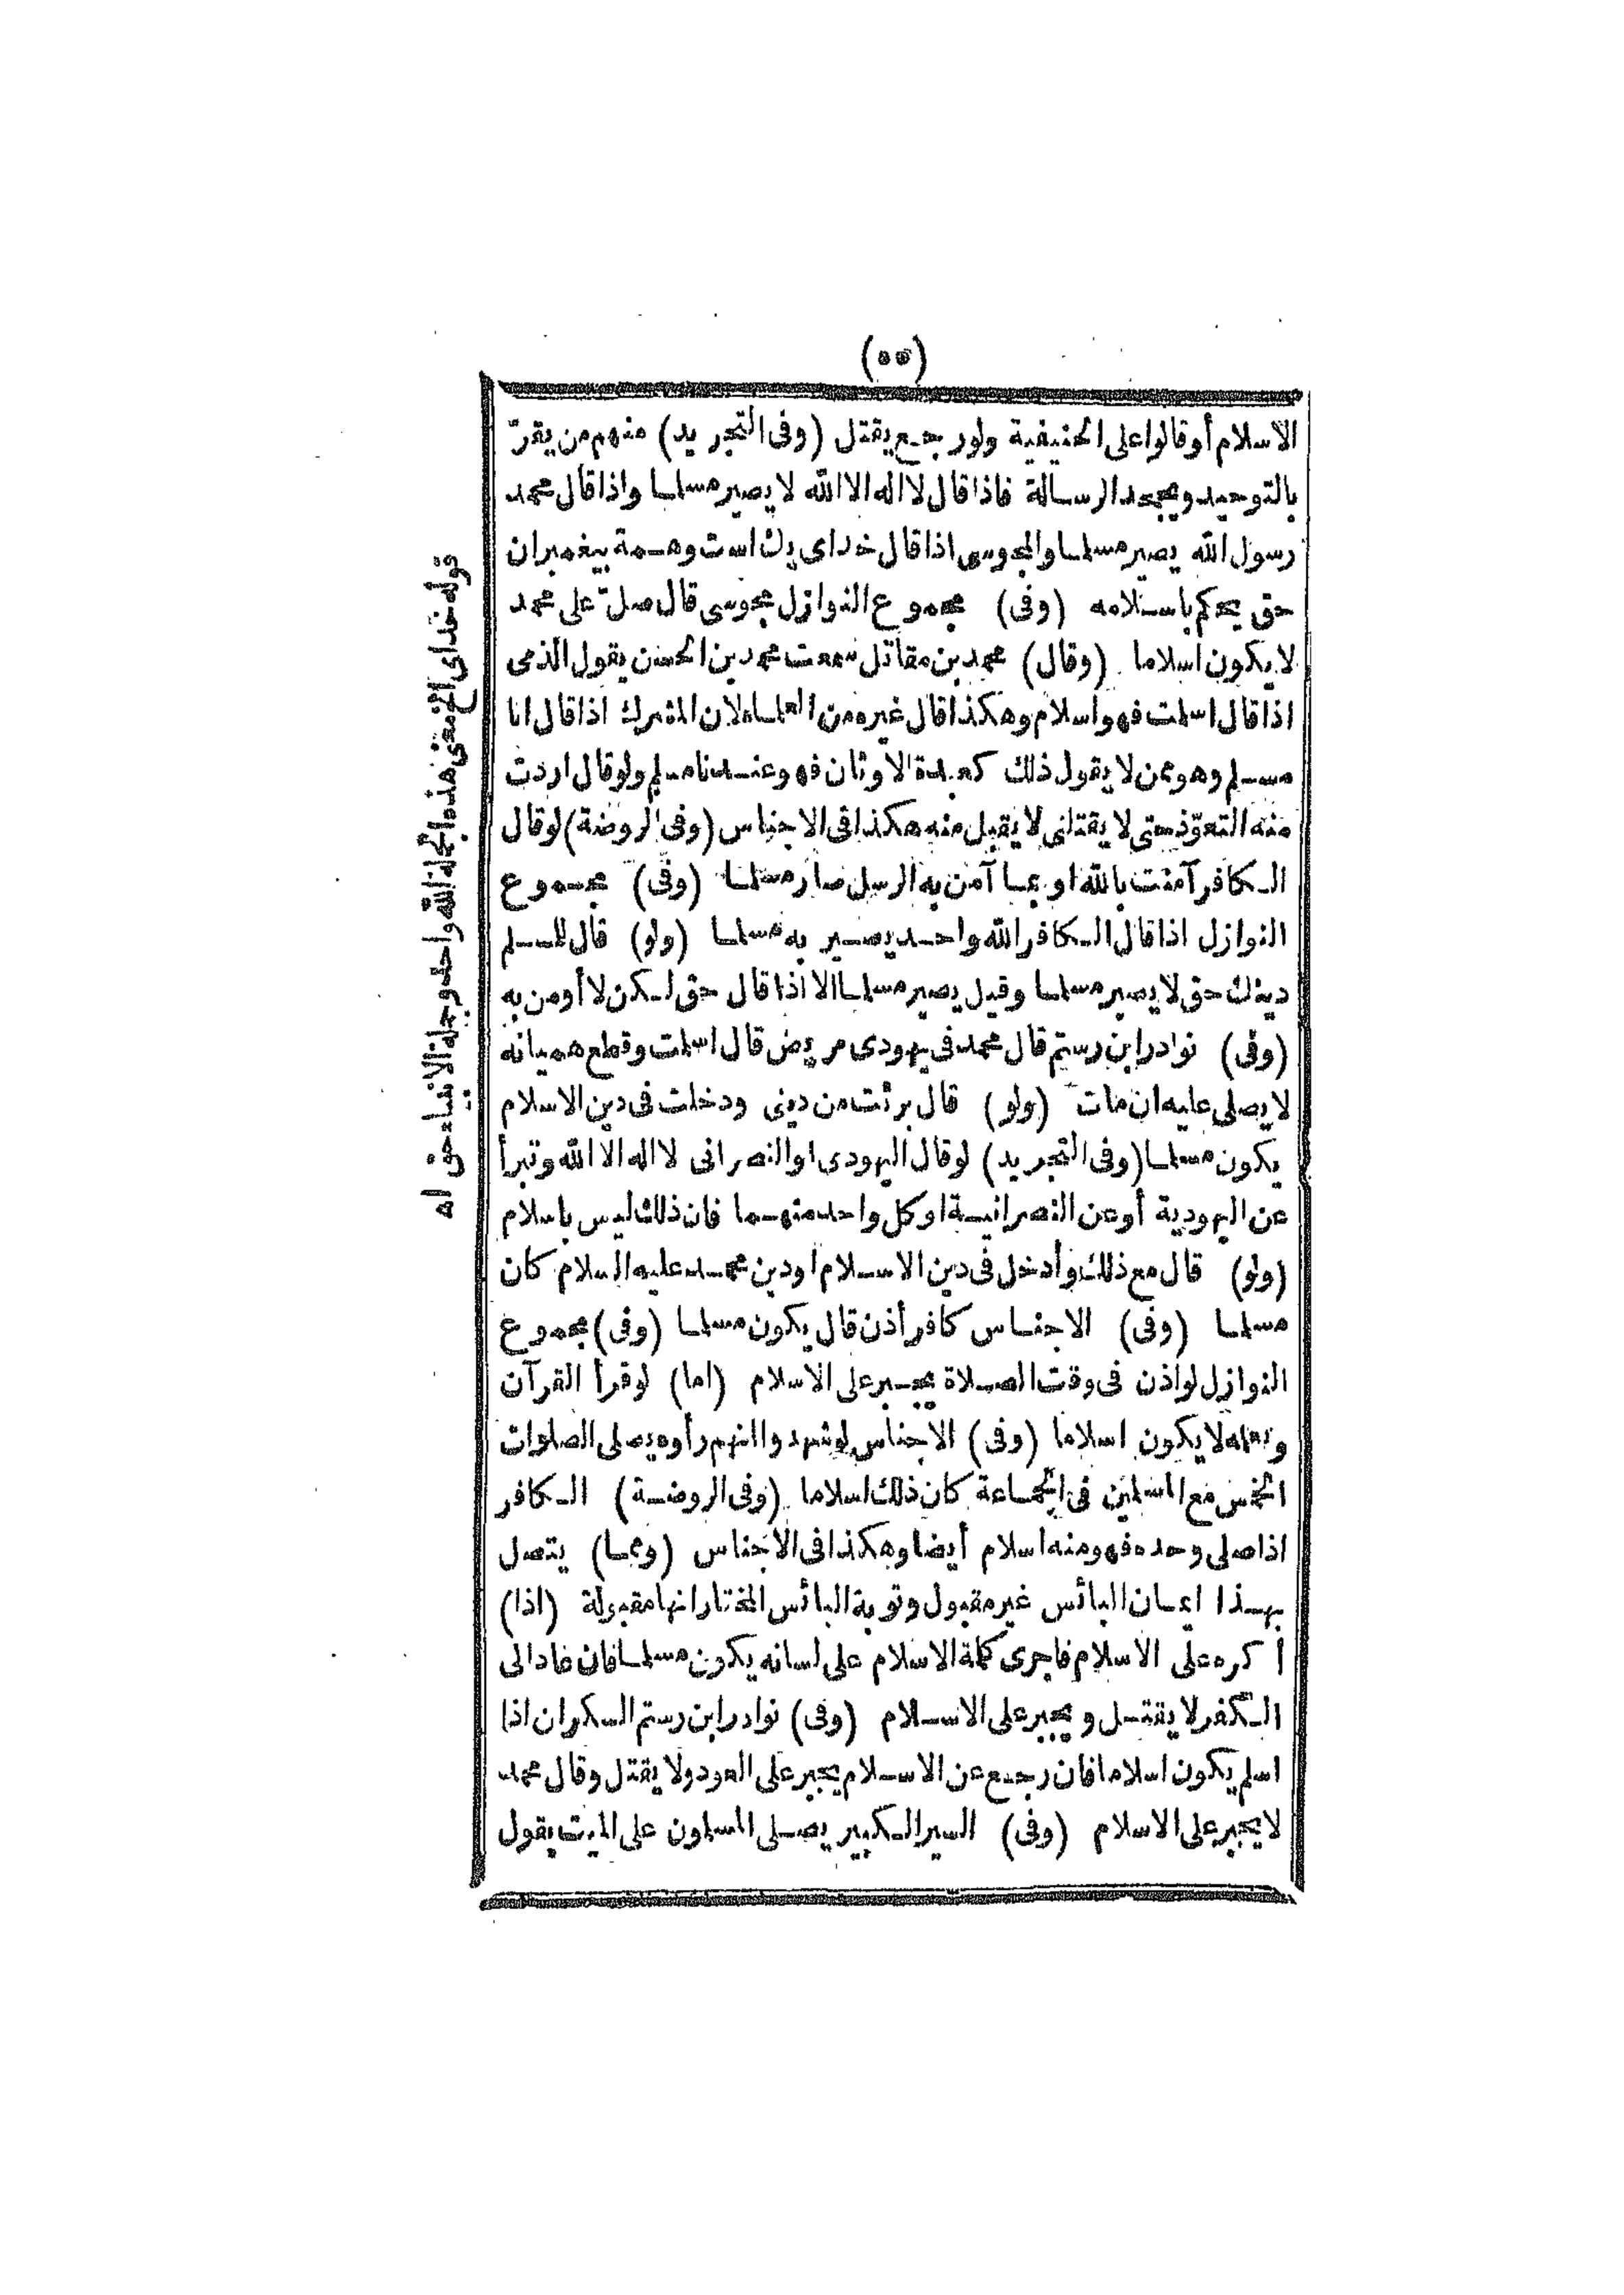 (٥٥)
الاسلام أو قالوا على الحنيفية ولو رجع يقتل (وفى التجريد) منهم من يقرّ
بالتوحيد ويجحد الرسالة فاذا قال لا اله الا الله لا يصير مسلما واذا قال محمد
رسول الله يصير مسلما والمجوسى اذا قال خداى يك است وهمة بيغمبران
حق يحكم باسلامه (وفى) مجموع النوازل مجوسى قال صلّ على محمد
لا يكون اسلاما (وقال) محمد بن مقاتل سمعت محمد بن الحسن يقول الذمى
اذا قال اسلمت فهو اسلام وهكذا قال غيره من العلماء لان المشرك اذا قال انا
مسلم وهو ممن لا يقول ذلك كعبدة الاوثان فهو عندنا مسلم ولو قال اردت
منه التعوّذ حتى لا يقتلنى لا يقبل منه هكذا فى الاجناس (وفى الروضة) لو قال
الكافر آمنت بالله او بما آمن به الرسل صار مسلما (وفى) مجموع
النوازل اذا قال الكافر الله واحد يصير به مسلما (ولو) قال للمسلم
دينك حق لا يصير مسلما وقيل يصير مسلما الا اذا قال حق لكن لا أومن به
(وفى) نوادر ابن رستم قال محمد فى يهودى مريض قال اسلمت وقطع هميانه
لا يصلى عليه ان مات (ولو) قال برئت من دينى ودخلت فى دين الاسلام
يكون مسلما (وفى التجريد) لو قال اليهودى او النصرانى لا اله الا الله وتبرأ
عن اليهودية أو عن النصرانية او كل واحد منهما فان ذلك ليس باسلام
(ولو) قال مع ذلك وأدخل فى دين الاسلام او دين محمد عليه السلام كان
مسلما (وفى) الاجناس كافر أذن قال يكون مسلما (وفى) مجموع
النوازل لو اذن فى وقت الصلاة يجبر على الاسلام (اما) لو قرأ القرآن
وتعلمه لا يكون اسلاما (وفى) الاجناس لو شهدوا انهم رأوه يصلى الصلوات
الخمس مع المسلمين فى الجماعة كان ذلك اسلاما (وفى الروضة) الكافر
اذا صلى وحده فهو منه اسلام أيضا وهكذا فى الاجناس (ومما) يتصل
بهذا ايمان البائس غير مقبول وتوبة البائس المختار انها مقبولة (اذا)
أكره على الاسلام فاجرى كلمة الاسلام على لسانه يكون مسلما فان عاد الى
الكفر لا يقتل ويجبر على الاسلام (وفى) نوادر ابن رستم السكران اذا
اسلم يكون اسلاما فان رجع عن الاسلام يجبر على العود ولا يقتل وقال محمد
لا يجبر على الاسلام (وفى) السير الكبير يصلى المسلمون على الميت بقول
قوله خداى الخ معنى هذه الجملة الله واحد وجملة الانبياء حق اه